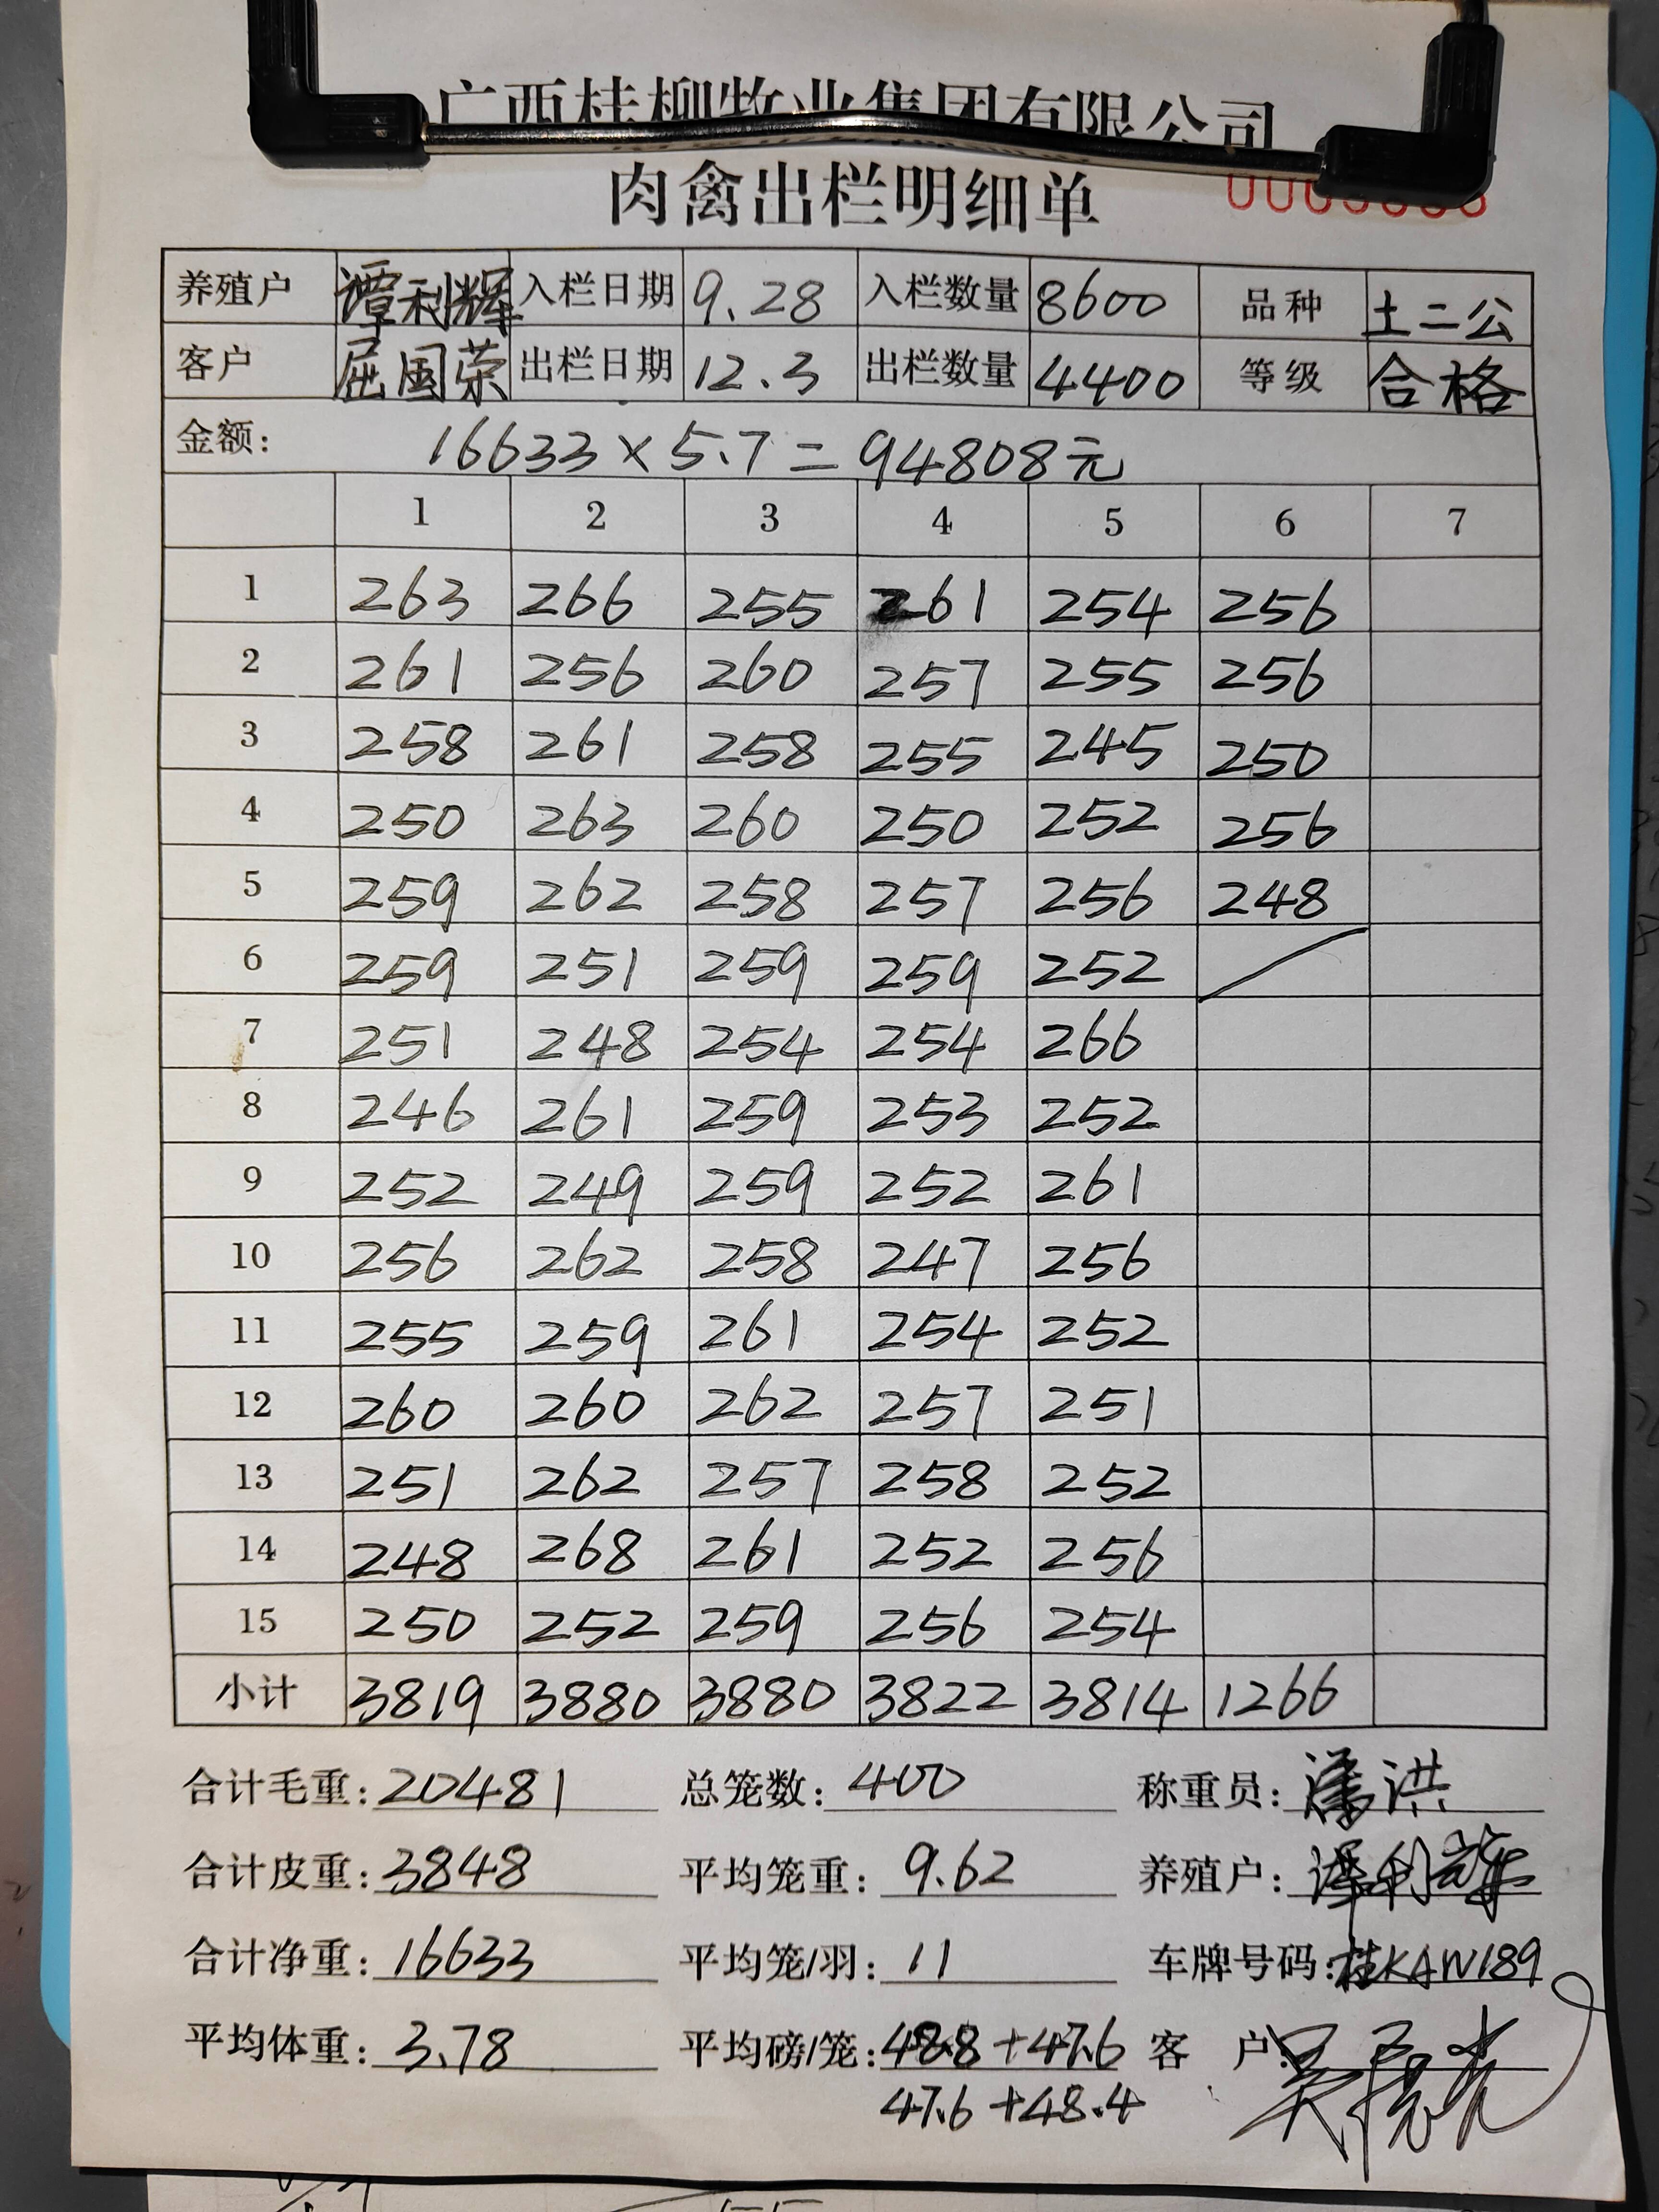 广西桂柳牧业集团有限公司
肉禽出栏明细单
养殖户 谭利辉 入栏日期 9.28 入栏数量 8600 品种 土二公
客户 屈国荣 出栏日期 12.3 出栏数量 4400 等级 合格
金额: 16633×5.7=94808元
1 2 3 4 5 6 7
1 263 266 255 261 254 256
2 261 256 260 257 255 256
3 258 261 258 255 245 250
4 250 263 260 250 252 256
5 259 262 258 257 256 248
6 259 251 259 259 252
7 251 248 254 254 266
8 246 261 259 253 252
9 252 249 259 252 261
10 256 262 258 247 256
11 255 259 261 254 252
12 260 260 262 257 251
13 251 262 257 258 252
14 248 268 261 252 256
15 250 252 259 256 254
小计 3819 3880 3880 3822 3814 1266
合计毛重:20481 总笼数:400 称重员:潘洪
合计皮重:3848 平均笼重:9.62 养殖户:谭利辉
合计净重:16633 平均笼/羽:11 车牌号码:桂KAW189
平均体重:3.78 平均磅/笼:48.8+47.6 客户:
47.6+48.4